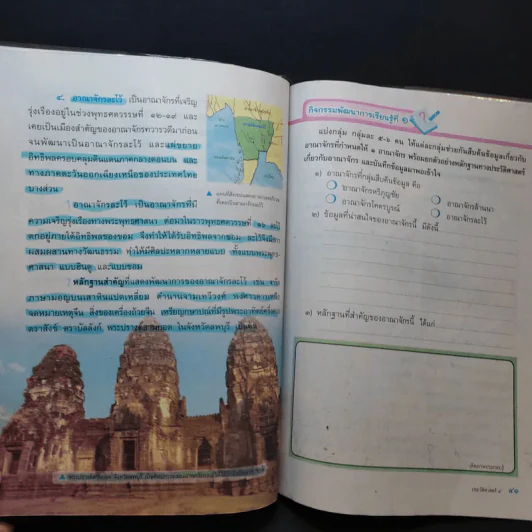 ๔. อาณาจักรละโว้ เป็นอาณาจักรที่เจริญ
รุ่งเรืองอยู่ในช่วงพุทธศตวรรษที่ ๑๒-๑๙ และ
เคยเป็นเมืองสำคัญของอาณาจักรทวารวดีมาก่อน
จนพัฒนาเป็นอาณาจักรละโว้ และแผ่ขยาย
อิทธิพลครอบคลุมดินแดนภาคกลางตอนบน และ
ทางภาคตะวันออกเฉียงเหนือของประเทศไทย
บางส่วน
อาณาจักรละโว้ เป็นอาณาจักรที่มี
ความเจริญรุ่งเรืองทางพระพุทธศาสนา ต่อมาในราวพุทธศตวรรษที่ ๑๖ ละโว้
ตกอยู่ภายใต้อิทธิพลของขอม จึงทำให้ได้รับอิทธิพลจากขอม ละโว้จึงมีการ
ผสมผสานทางวัฒนธรรม ทำให้มีศิลปะหลากหลายแบบ ทั้งแบบพระพุทธ-
ศาสนา แบบฮินดู และแบบขอม
หลักฐานสำคัญที่แสดงพัฒนาการของอาณาจักรละโว้ เช่น
ภาษามอญบนเสาหินแปดเหลี่ยม ตำนานจามเทวีวงศ์ พงศาวดารเหนือ
จดหมายเหตุจีน ลูกปัด พระปรางค์สามยอด ในจังหวัดลพบุรี เป็นต้น
กิจกรรมพัฒนาการเรียนรู้ที่ ๑
แบ่งกลุ่ม กลุ่มละ ๕-๖ คน ให้แต่ละกลุ่มช่วยกันสืบค้นข้อมูลเกี่ยวกับ
อาณาจักรที่กำหนดให้ ๑ อาณาจักร พร้อมยกตัวอย่างหลักฐานทางประวัติศาสตร์
เกี่ยวกับอาณาจักร และบันทึกข้อมูลมาพอเข้าใจ
๑) อาณาจักรที่กลุ่มสืบค้นข้อมูล คือ
อาณาจักรหริภุญชัย อาณาจักรล้านนา
อาณาจักรตามพรลิงค์ อาณาจักรละโว้
๒) ข้อมูลที่น่าสนใจของอาณาจักรนี้ มีดังนี้
๓) หลักฐานที่สำคัญของอาณาจักรนี้ ได้แก่
ประวัติศาสตร์ ๔